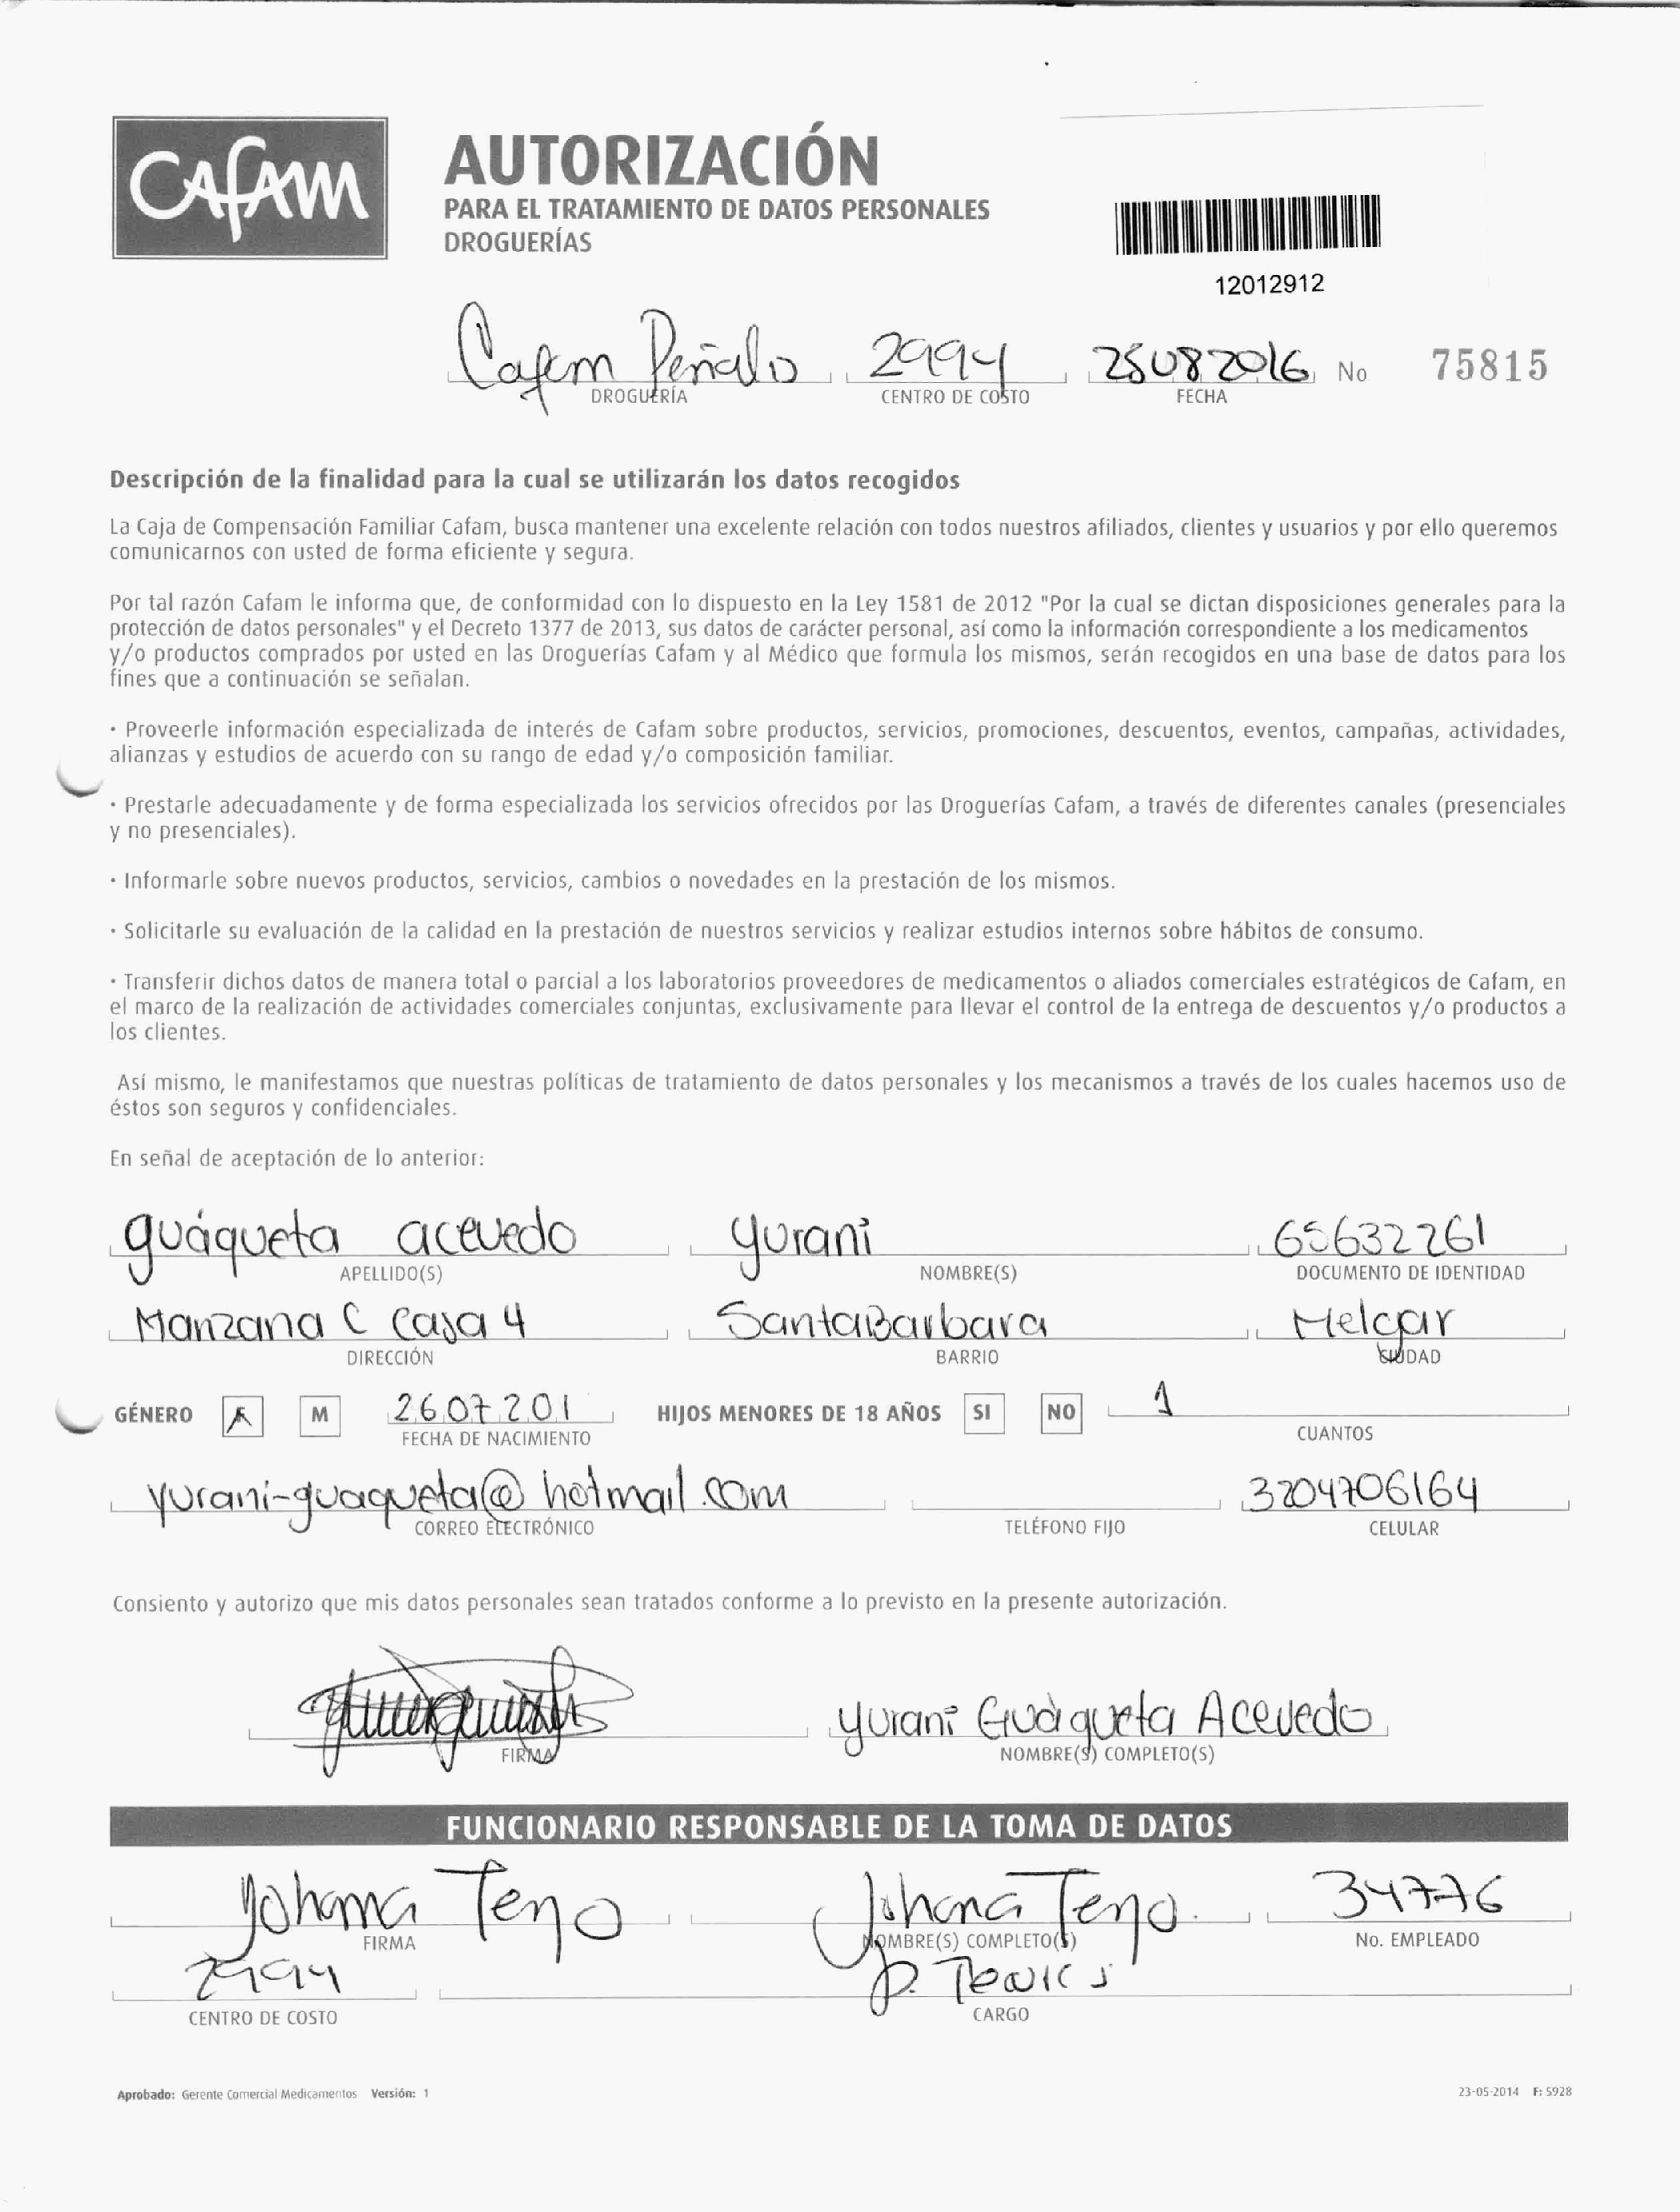 CAFAM
AUTORIZACIÓN
PARA EL TRATAMIENTO DE DATOS PERSONALES
DROGUERÍAS
12012912
Cafam 2994 25082016 No 75815
DROGUERÍA CENTRO DE COSTO FECHA
Descripción de la finalidad para la cual se utilizarán los datos recogidos
La Caja de Compensación Familiar Cafam, busca mantener una excelente relación con todos nuestros afiliados, clientes y usuarios y por ello queremos
comunicarnos con usted de forma eficiente y segura.
Por tal razón Cafam le informa que, de conformidad con lo dispuesto en la Ley 1581 de 2012 "Por la cual se dictan disposiciones generales para la
protección de datos personales" y el Decreto 1377 de 2013, sus datos de carácter personal, así como la información correspondiente a los medicamentos
y/o productos comprados por usted en las Droguerías Cafam y al Médico que formula los mismos, serán recogidos en una base de datos para los
fines que a continuación se señalan.
· Proveerle información especializada de interés de Cafam sobre productos, servicios, promociones, descuentos, eventos, campañas, actividades,
alianzas y estudios de acuerdo con su rango de edad y/o composición familiar.
· Prestarle adecuadamente y de forma especializada los servicios ofrecidos por las Droguerías Cafam, a través de diferentes canales (presenciales
y no presenciales).
· Informarle sobre nuevos productos, servicios, cambios o novedades en la prestación de los mismos.
· Solicitarle su evaluación de la calidad en la prestación de nuestros servicios y realizar estudios internos sobre hábitos de consumo.
· Transferir dichos datos de manera total o parcial a los laboratorios proveedores de medicamentos o aliados comerciales estratégicos de Cafam, en
el marco de la realización de actividades comerciales conjuntas, exclusivamente para llevar el control de la entrega de descuentos y/o productos a
los clientes.
Así mismo, le manifestamos que nuestras políticas de tratamiento de datos personales y los mecanismos a través de los cuales hacemos uso de
éstos son seguros y confidenciales.
En señal de aceptación de lo anterior:
guáqueta acevedo yurani 65632261
APELLIDO(S) NOMBRE(S) DOCUMENTO DE IDENTIDAD
Manzana C Casa 4 SantaBarbara Melgar
DIRECCIÓN BARRIO CIUDAD
GÉNERO F M 2607201 HIJOS MENORES DE 18 AÑOS SI NO 1
FECHA DE NACIMIENTO CUANTOS
yurani-guaqueta@hotmail.com 3204706164
CORREO ELECTRÓNICO TELÉFONO FIJO CELULAR
Consiento y autorizo que mis datos personales sean tratados conforme a lo previsto en la presente autorización.
yurani Guáqueta Acevedo
FIRMA NOMBRE(S) COMPLETO(S)
FUNCIONARIO RESPONSABLE DE LA TOMA DE DATOS
Johana Johana 34776
FIRMA NOMBRE(S) COMPLETO(S) No. EMPLEADO
2994
CENTRO DE COSTO CARGO
Aprobado: Gerente Comercial Medicamentos Versión: 1 23-05-2014 F: 5928